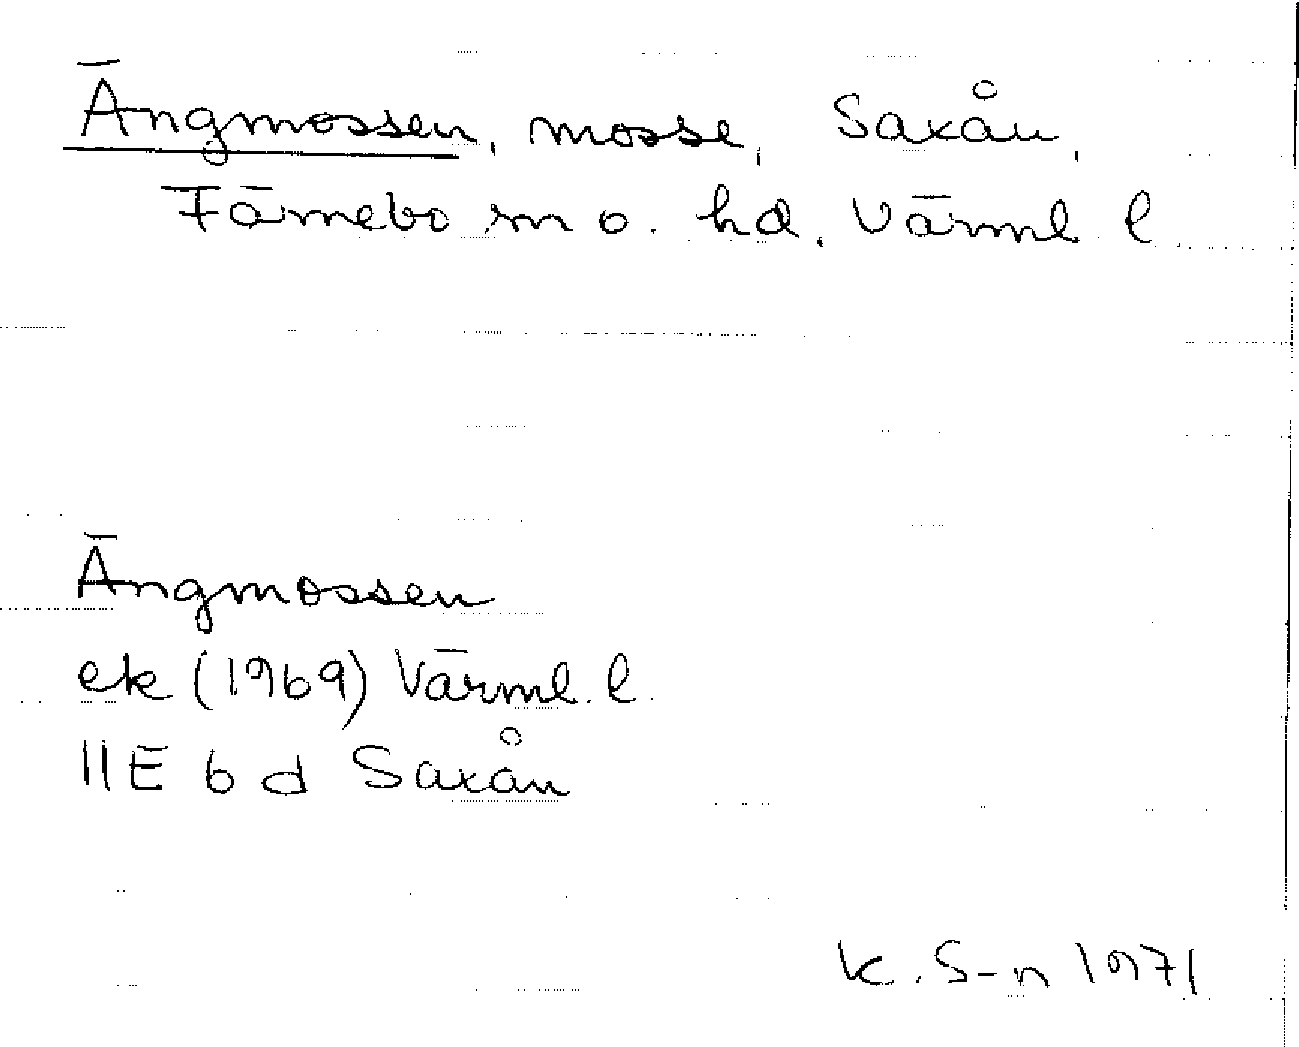 Ängmossen, mosse, Saxån,
Färnebo sn o. hd, Värml. l.
Ängmossen
ek (1969) Värml. l.
11E 6d Saxån
K. S-n 1971